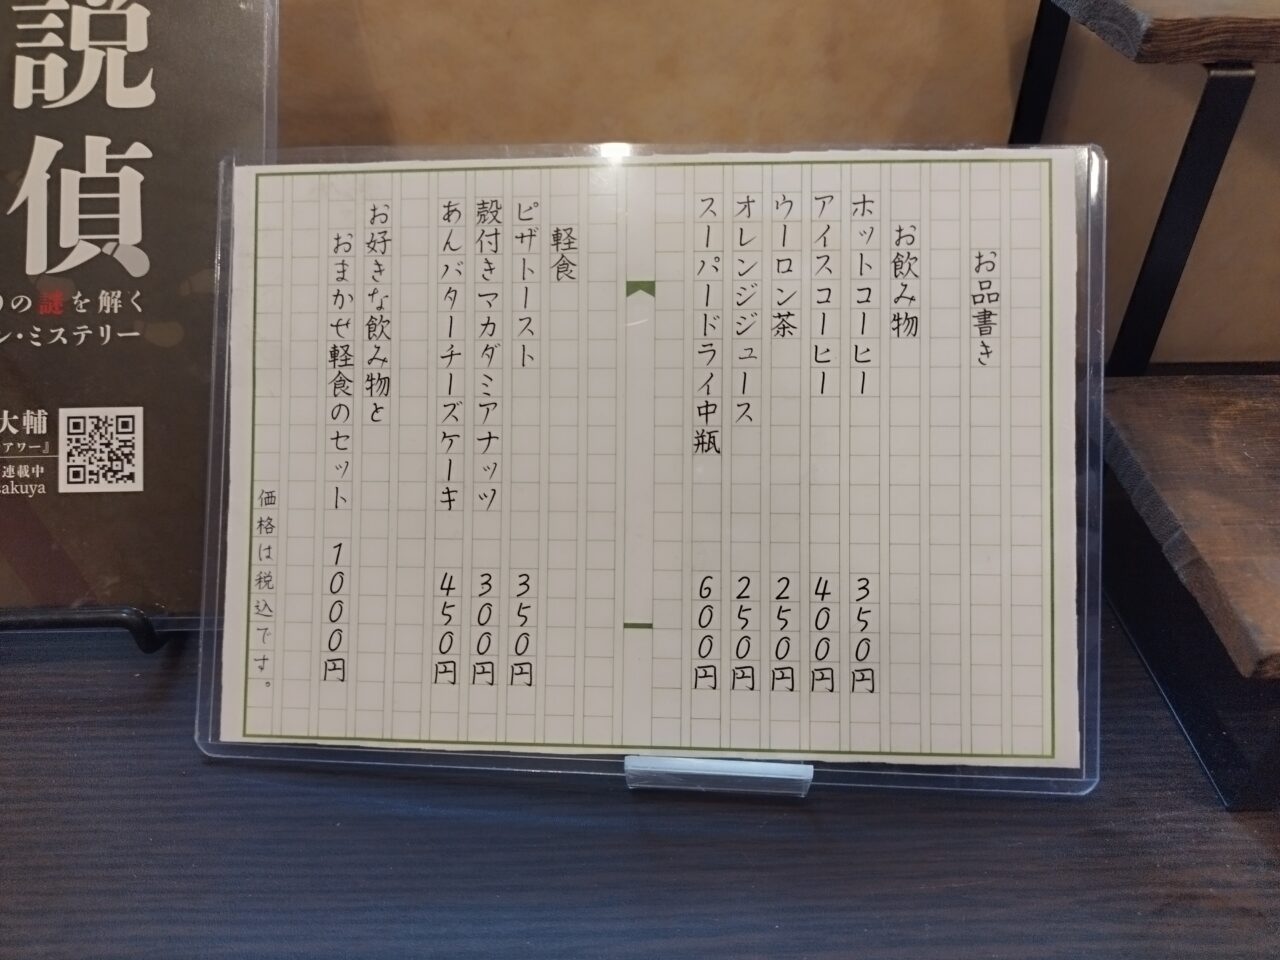 お品書き
お飲み物
ホットコーヒー 350円
アイスコーヒー 400円
ウーロン茶 250円
オレンジジュース 250円
スーパードライ中瓶 600円
軽食
ピザトースト 350円
殻付きマカダミアナッツ 300円
あんバターチーズケーキ 450円
お好きな飲み物と
おまかせ軽食のセット 1000円
価格は税込です。
説
偵
の謎を解く
ン・ミステリー
大輔
アワー』
連載中
sakuya